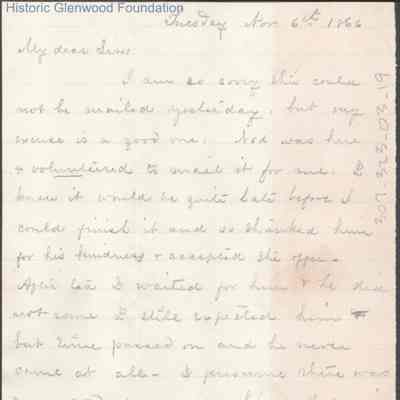 Historic Glenwood Foundation
Tuesday Nov. 6th 1866
My dear
I am so sorry this could
not be mailed yesterday, but my
excuse is a good one. Ned was here
& volunteered to mail it for me. I
knew it would be quite late before I
could finish it and so thanked him
for his kindness & accepted the offer.
After tea I waited for him & he did
not come I still expected him
but time passed on and he never
came at all - I presume there was